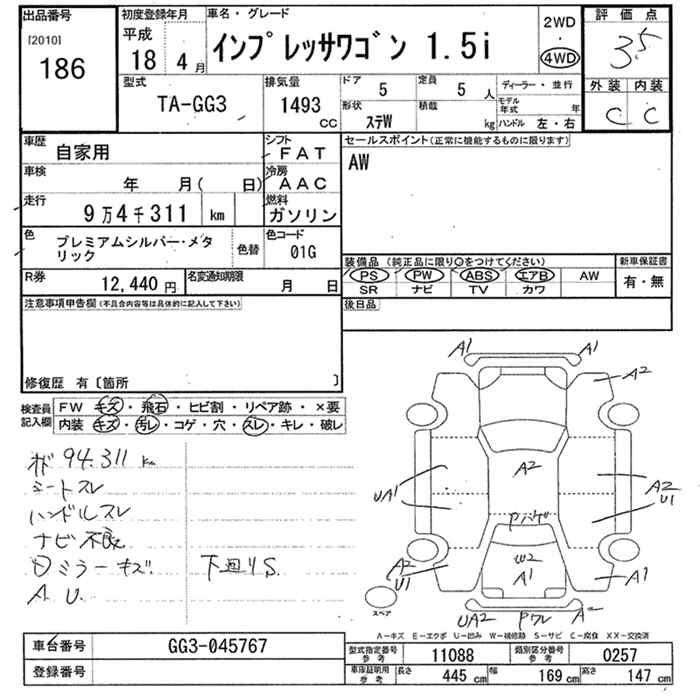 出品番号 初度登録年月 車名・グレード 2WD 評価点
[2010] 平成
186 18年 4月 インプレッサワゴン 1.5i 4WD 3.5
型式 排気量 ドア 定員 ディーラー・並行 外装 内装
TA-GG3 1493 CC 5 5人 モデル年式 年 C C
形状 積載
ステW kg ハンドル 左・右
車歴 自家用 シフト FAT セールスポイント(正常に機能するものに限ります)
車検 年 月( 日) 冷房 AAC AW
走行 9万4千311 km 燃料 ガソリン
色 プレミアムシルバー・メタリック 色替 色コード 01G
装備品 (純正品に限り○をつけてください) 新車保証書
R券 12,440円 名変通知期限 月 日 PS PW ABS エアB AW 有・無
SR ナビ TV カワ
注意事項申告欄(不具合内容等は具体的に記入して下さい) 後日品
修復歴 有〔箇所 〕
検査員記入欄 FW キズ・飛石・ヒビ割・リペア跡・×要
内装 キズ・汚レ・コゲ・穴・スレ・キレ・破レ
94.311 km
シートスレ
ハンドルスレ
ナビ不良
ミラーキズ 下廻りS.
A. U.
A1 A1
A2
A2
UA1 A2 U1
Pハゲ
W2
A2 U1 A1 A1
スペア
UA2 Pワレ A2
A-キズ E-エクボ U-凹み W-補修跡 S-サビ C-腐食 XX-交換済
車台番号 GG3-045767 型式指定番号 参考 11088 類別区分番号 参考 0257
登録番号 車庫証明用 参考 長さ 445 cm 幅 169 cm 高さ 147 cm